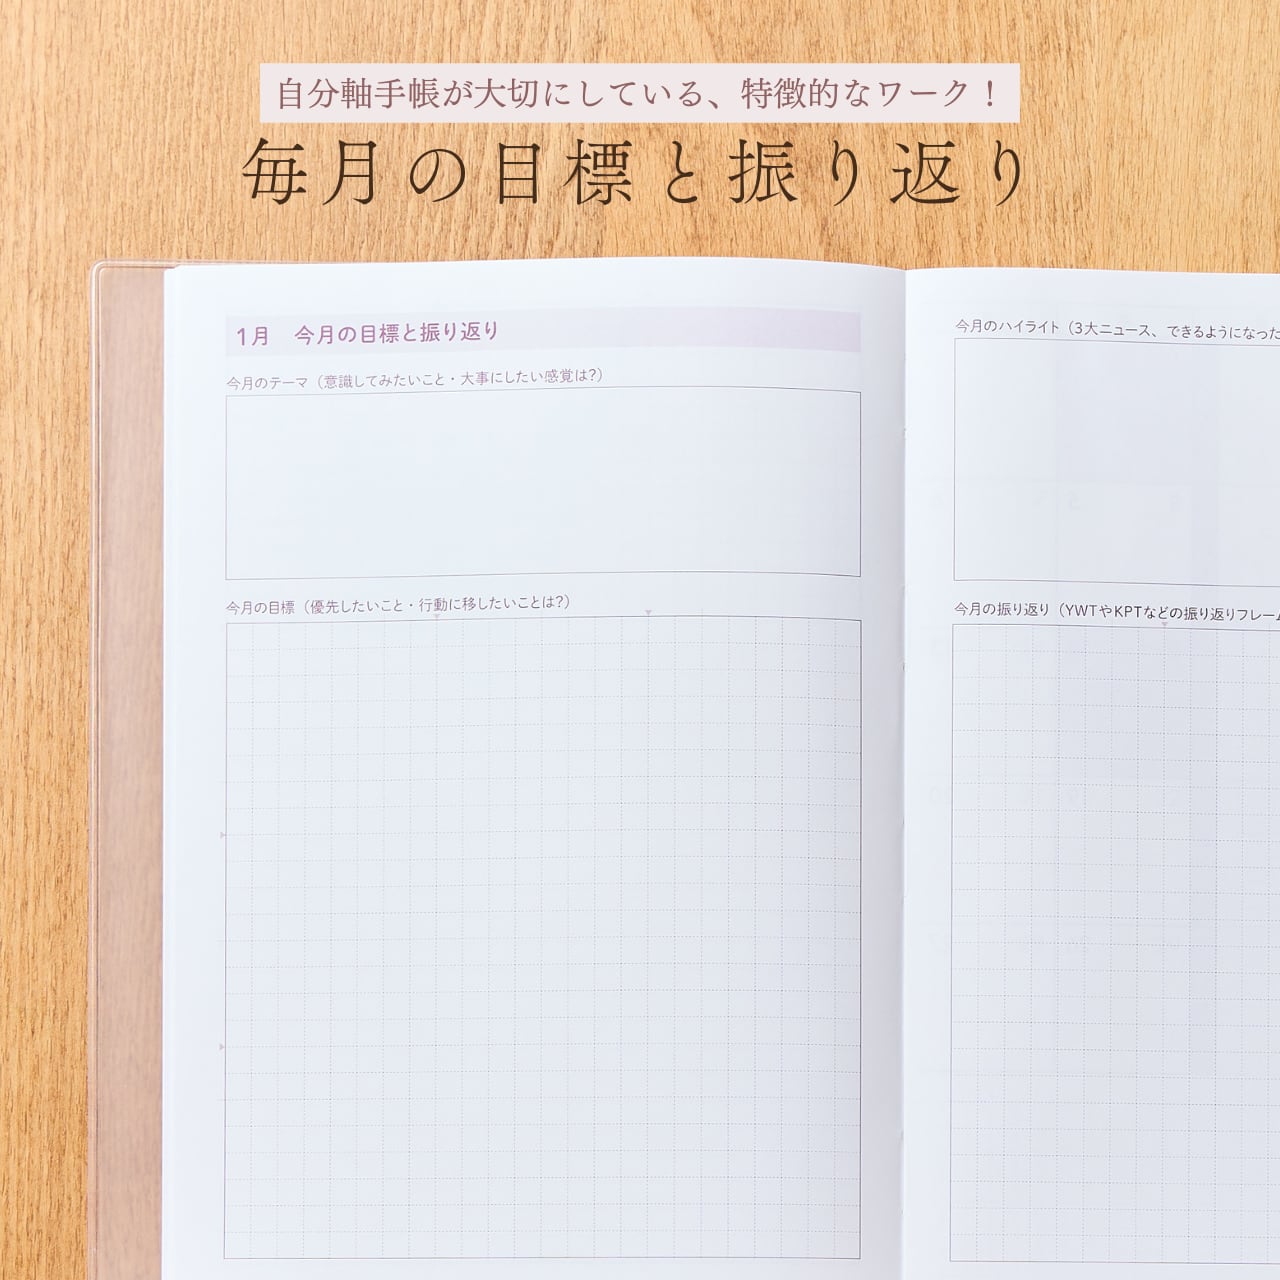 自分軸手帳が大切にしている、特徴的なワーク！
毎月の目標と振り返り
1月　今月の目標と振り返り
今月のテーマ（意識してみたいこと・大事にしたい感覚は?）
今月の目標（優先したいこと・行動に移したいことは?）
今月のハイライト（3大ニュース、できるようになった
今月の振り返り（YWTやKPTなどの振り返りフレー